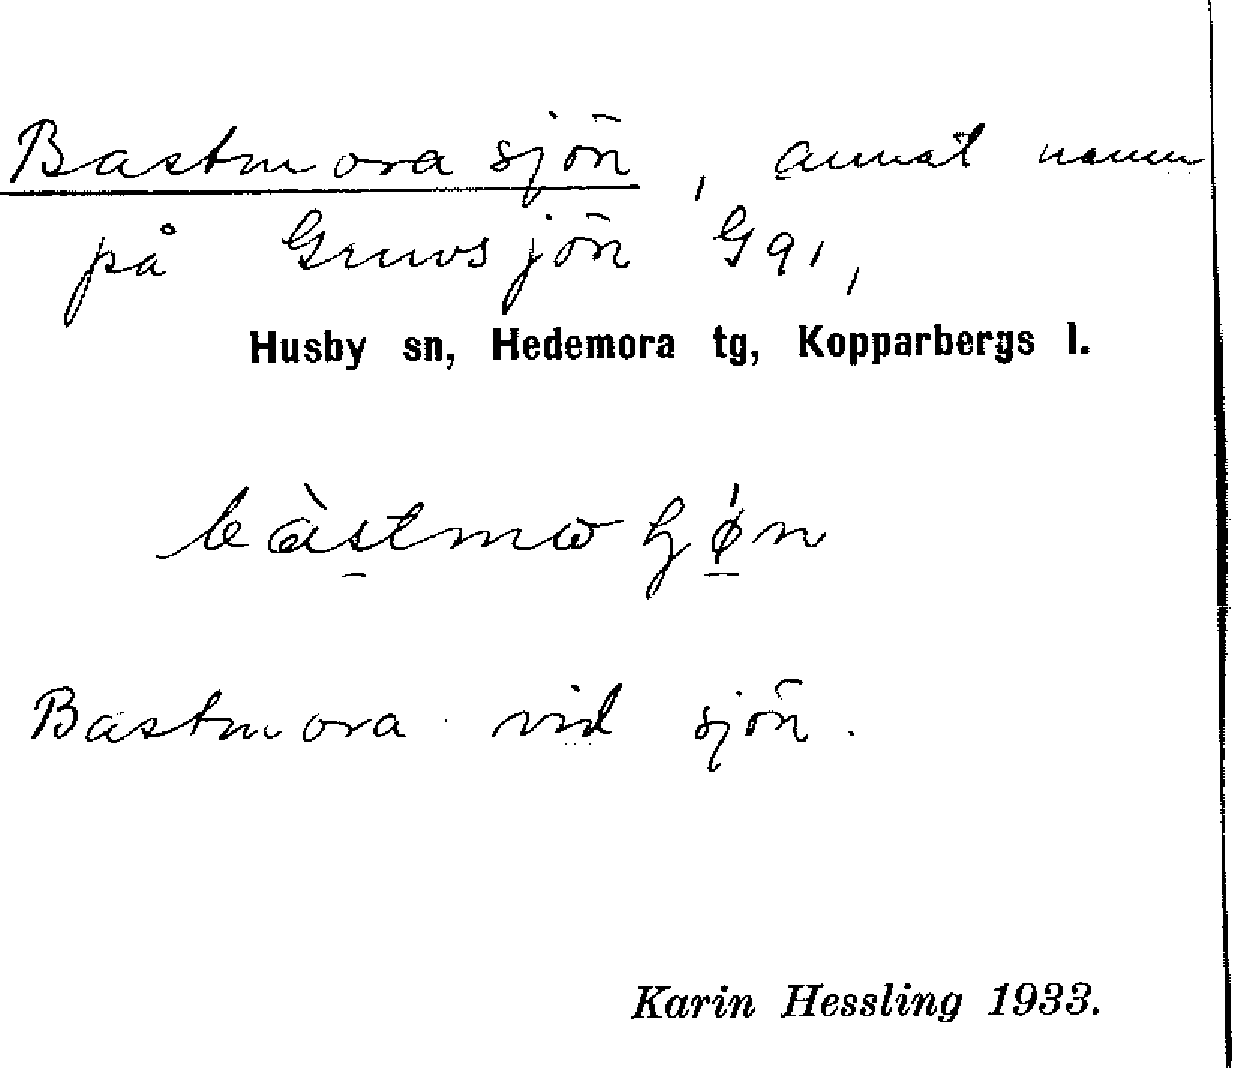 Bastmorasjön, annat namn
på Gruvsjön G 91,
Husby sn, Hedemora tg, Kopparbergs l.
Bastmora vid sjön.
Karin Hessling 1933.